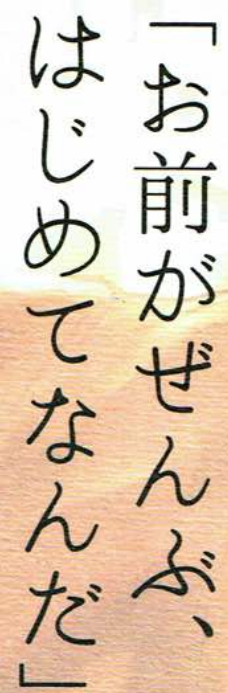 「お前がぜんぶ、
はじめてなんだ」